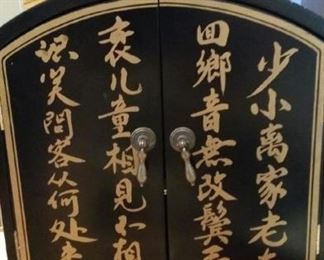 少小离家老大
回鄉音無改鬢毛
衰儿童相見不相
识笑問客从何处来